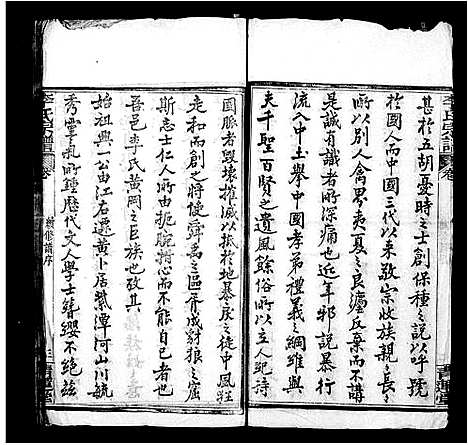 甚於五胡憂時之士創保種之說以呼號
國人而中國三代以來敬宗收族親親長長之
所以別人禽界夷夏之良讜反棄而不講
是誠有識者所深痛也近年邪說暴行
流入中土舉中國孝弟禮義之綱維與
夫千聖百賢之遺風餘俗所以立人紀待
國脈者毀壞摧滅以抵於地暴戾之徒中風狂
走和而創之將使舜禹之區胥成豺狼之窟
斯志士仁人所由扼腕摶心而不能自已者也
吾邑李氏黃岡之巨族也攷其
始祖興一公由江右遷黃卜居紫潭河山川毓
秀靈氣所鍾歷代文人學士簪纓不絕茲
李氏宗譜
卷
續修譜序
三